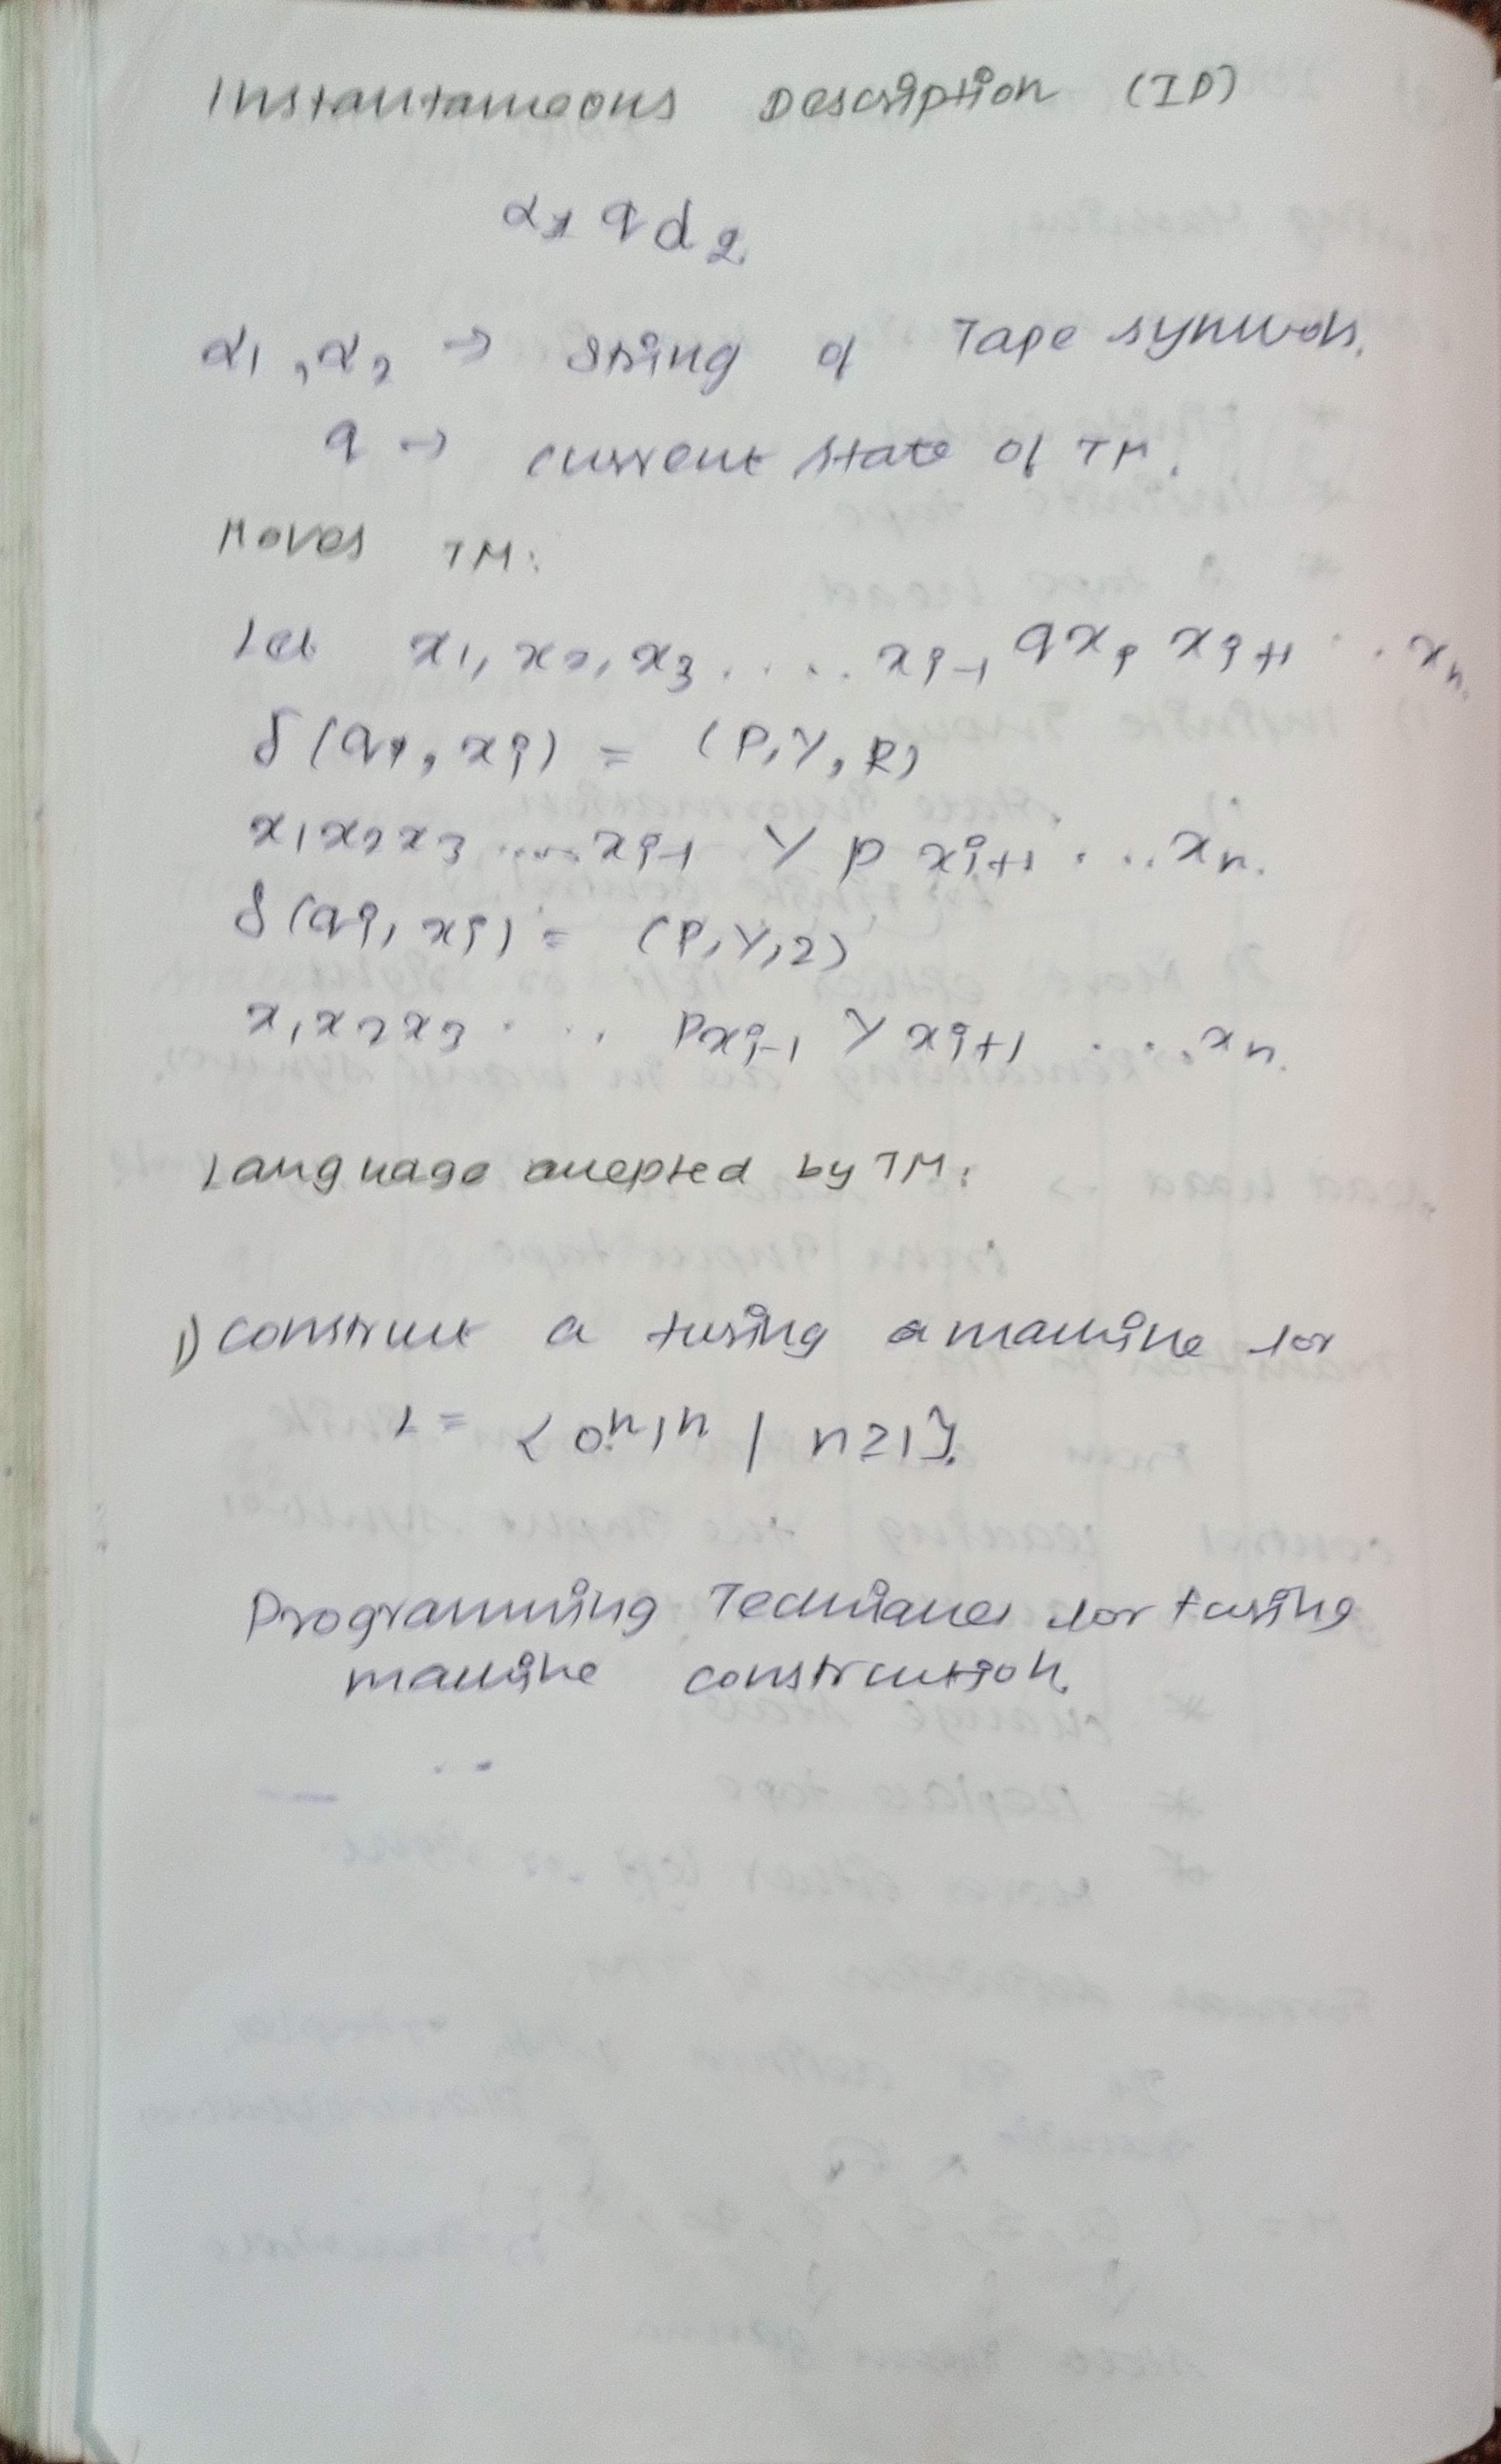 Instantaneous Description (ID)
α1 q α2
α1, α2 → string of Tape symbols.
q → current state of TM.
Moves TM:
Let x1, x2, x3 .... xi-1 q xi xi+1 ... xn.
δ(qi, xi) = (P, Y, R)
x1x2x3 .... xi-1 Y p xi+1 ... xn.
δ(qi, xi) = (P, Y, 2)
x1x2x3 ... Pxi-1 Y xi+1 .... xn.
Language accepted by TM:
1) construct a turing a machine for
L = {0^n 1^n | n≥1}.
Programming Techniques for turing
machine construction.